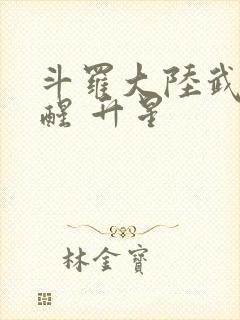 斗羅大陸武
醒 升星
林金寶